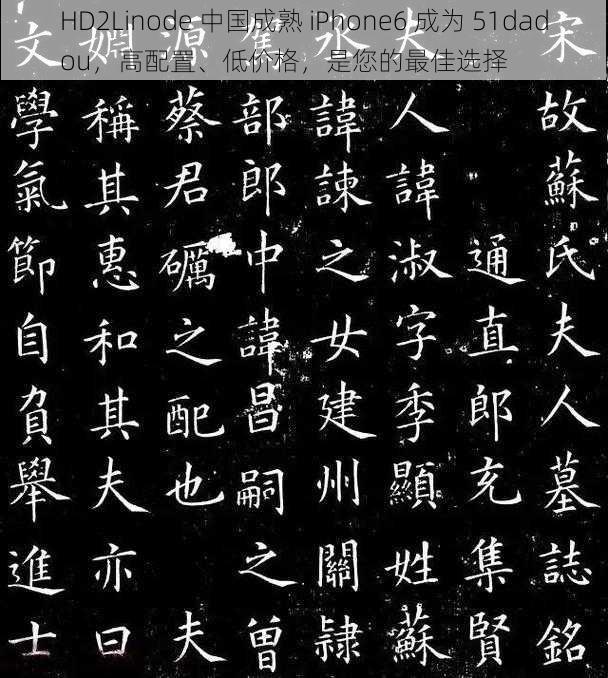 HD2Linode 中国成熟 iPhone6 成为 51dad
ou，高配置、低价格，是您的最佳选择
宋故蘇氏夫人墓誌銘
通直郎充集賢
夫人諱淑字季顯姓蘇
永諱諫之女建州關隸
部郎中諱昌嗣之曾
源蔡君礪之配也夫
嫻稱其惠和其夫亦曰
文學氣節自負舉進士